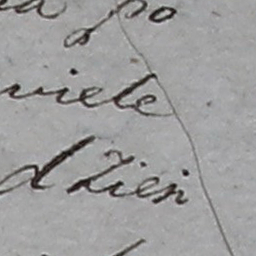 po
wiele
dzień